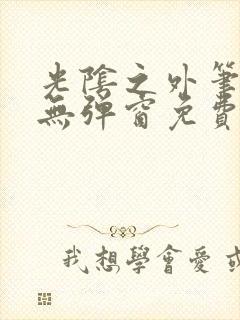 光陰之外筆
無彈窗免費
我想學會愛或